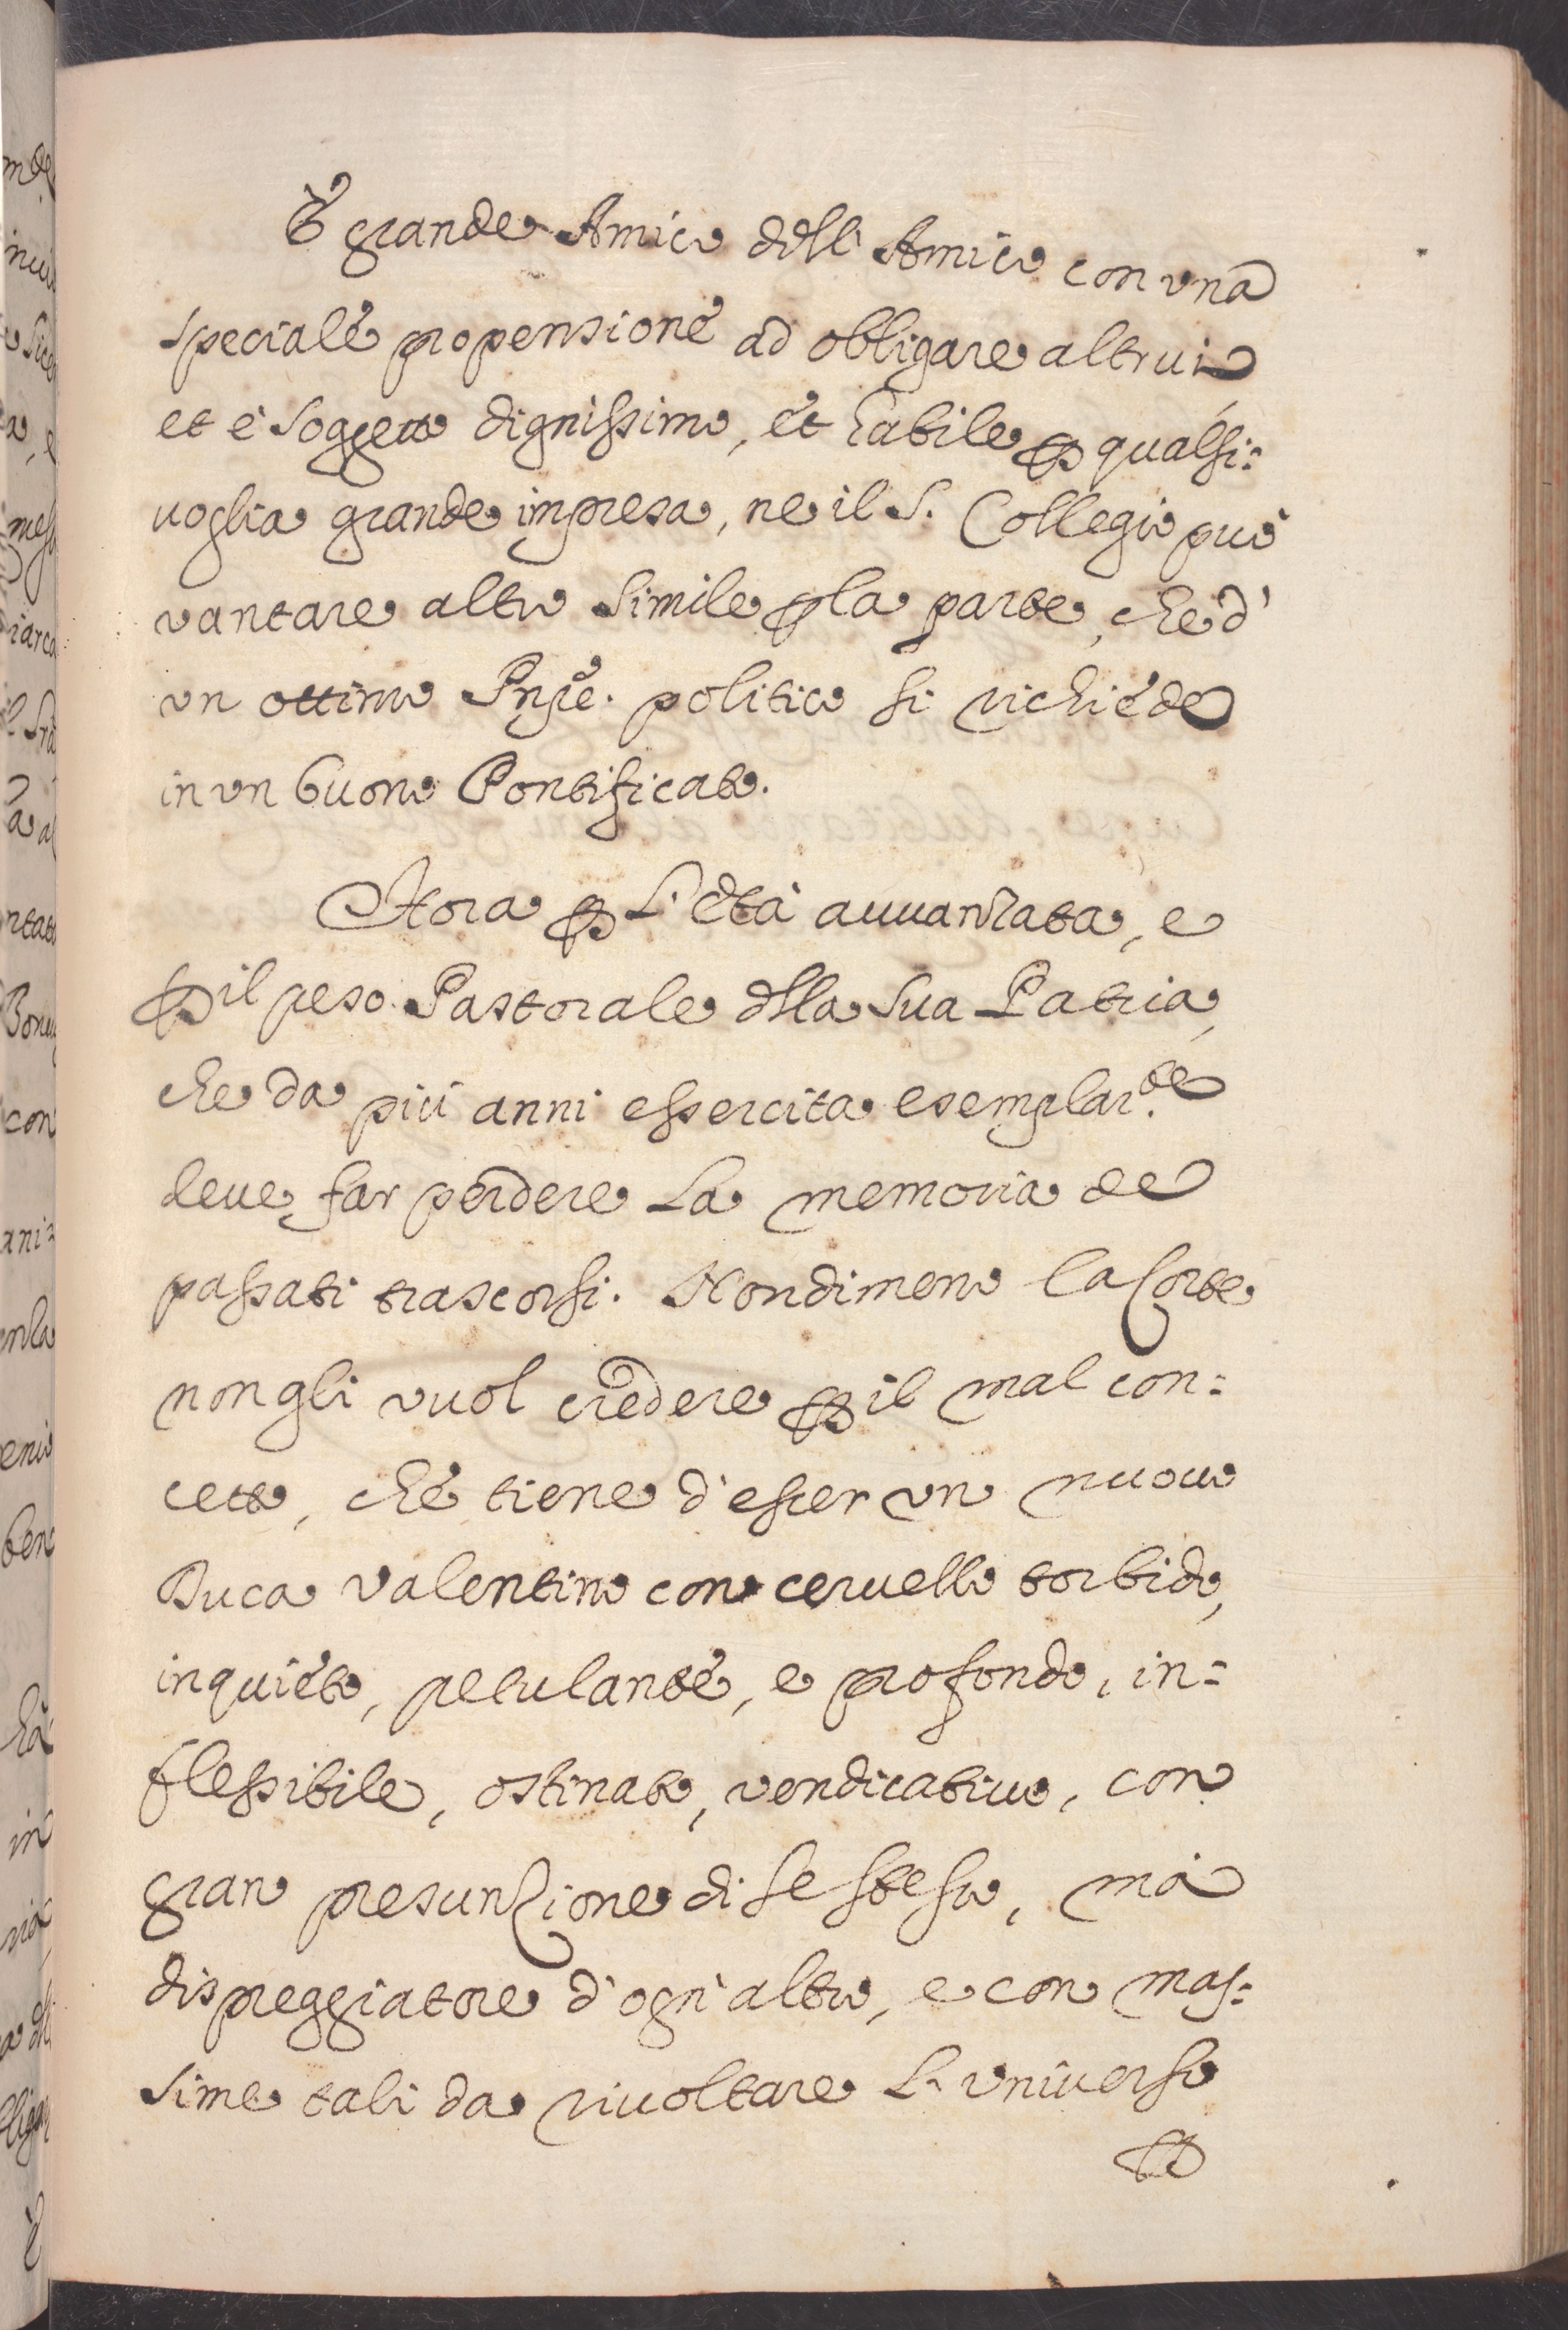 È grande Amico dell' Amico con una
speciale propensione ad obligare altrui
et è soggetto dignissimo, et habile p qualsi:
uoglia grande impresa, ne il S. Collegio può
vantare altro simile p la parte, che d'
vn ottimo Pnpe. politico si richiede
in vn buono Pontificato.
Hora p L'età auuanzata, e
p il peso Pastorale della sua Patria,
che da più anni essercita esemplar.te
deue far perdere La memoria de
passati trascorsi. Nondimeno la Corte
non gli vuol credere p il mal con:
cetto, che tiene d'esser vn nuouo
Duca Valentino con ceruello torbido,
inquieto, petulante, e profondo, in:
flessibile, ostinato, vendicatiuo, con
gran presunzione di se stesso, mà
dispreggiatore d'ogn'altro, e con mas:
sime tali da riuoltare L'vniuerso